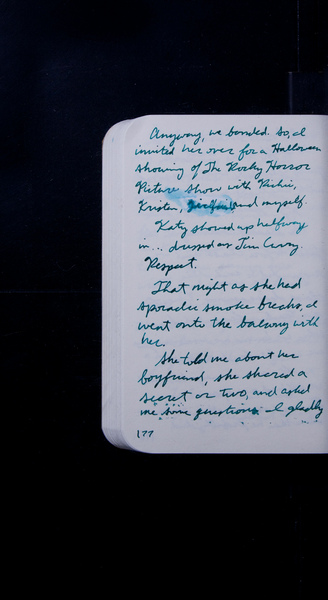 Anyway, we bonded. So, I
invited her over for a Halloween
showing of The Rocky Horror
Picture Show with Richie,
Kristen, and myself.
Katy showed up halfway
in... dressed as Tim Curry.
Respect.
That night as she had
sporadic smoke breaks, I
went onto the balcony with
her.
She told me about her
boyfriend, she shared a
secret or two, and asked
me some questions I gladly
177